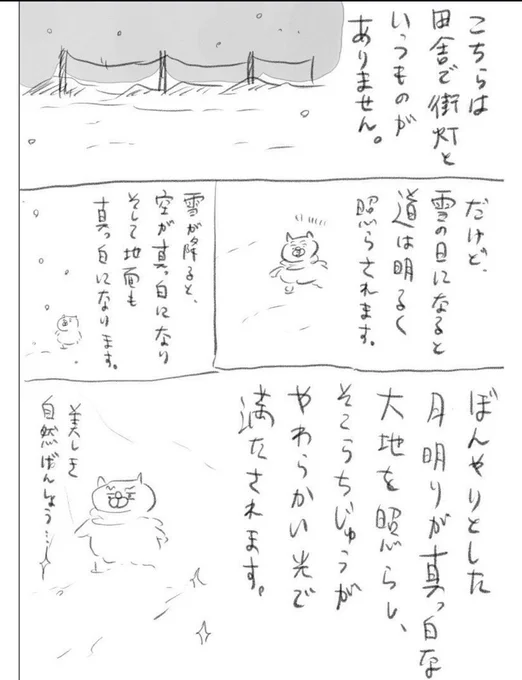 こちらは
田舎で街灯と
いうものが
ありません。
だけど、
雪の日になると
道は明るく
照らされます。
雪が降ると、
空が真っ白になり
そして地面も
真っ白になります。
ぼんやりとした
月明りが真っ白な
大地を照らし、
そこらちじゅうが
やわらかい光で
満たされます。
美しき
自然ばんしょう…